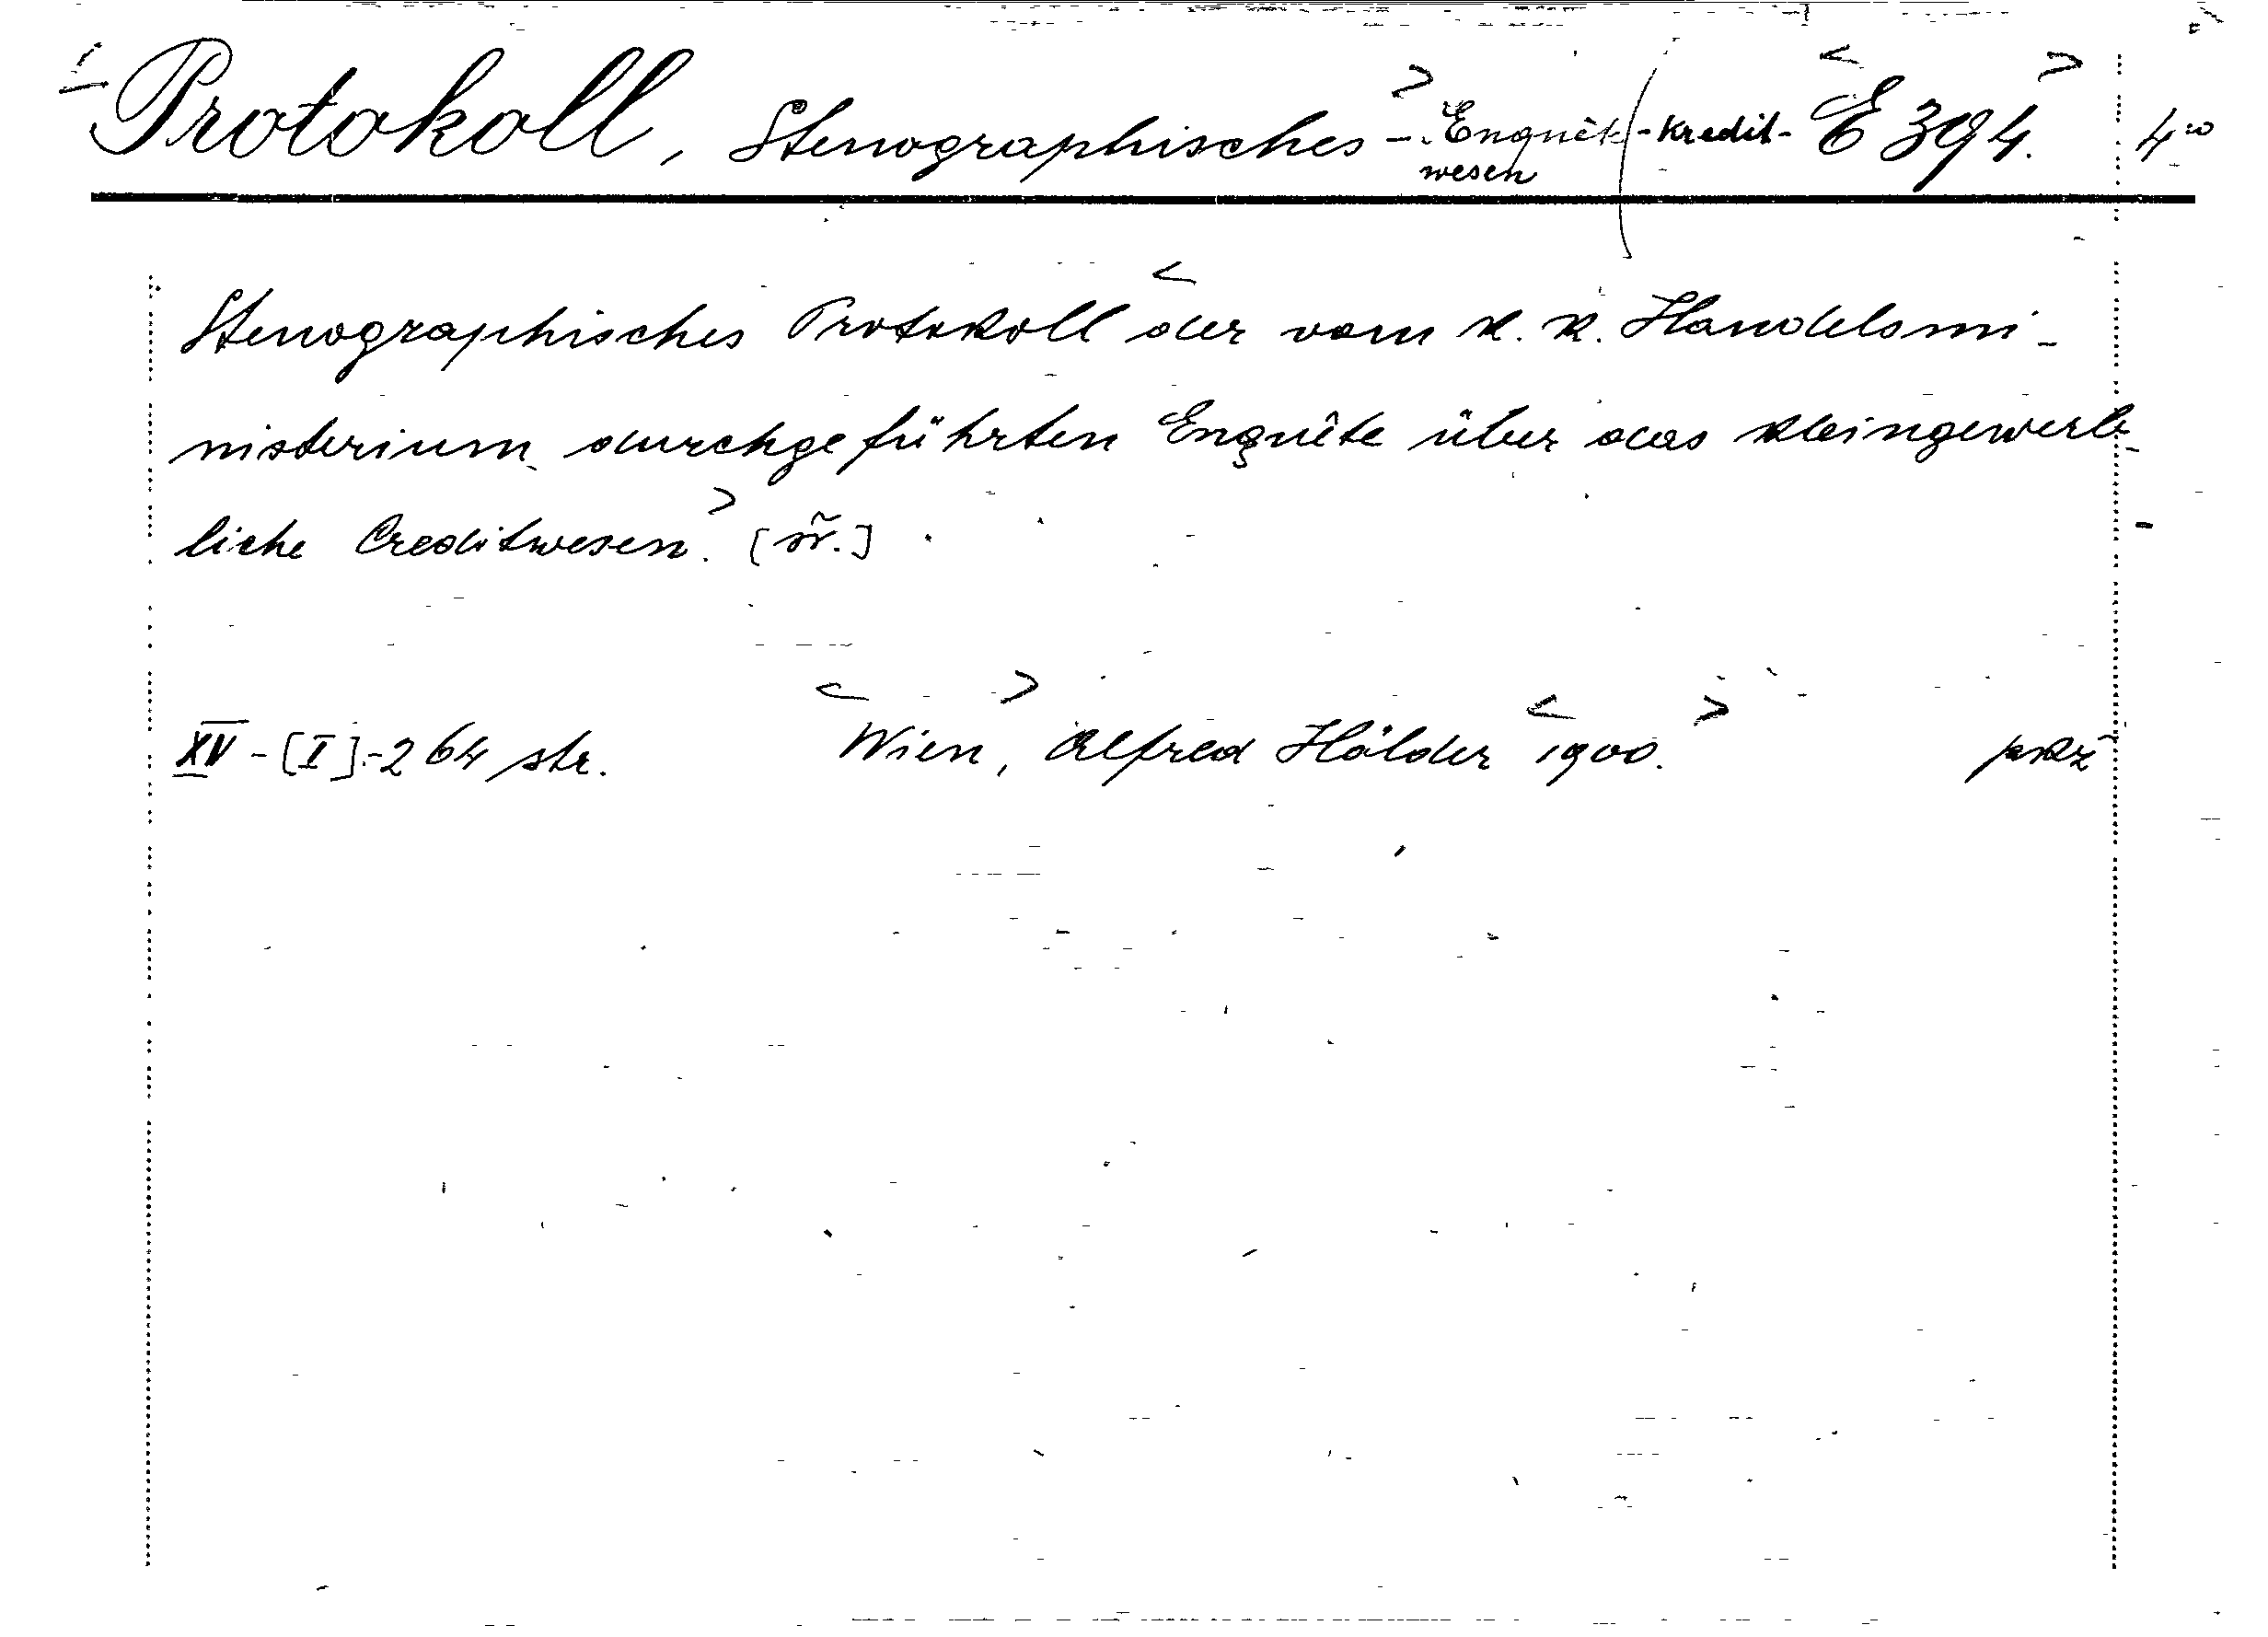 Protokoll, Stenographisches - Enquête - Kredit- E 394. 4°
wesen
Stenographisches Protokoll der vom k. k. Handelsmi-
nisterium durchgeführten Enquête über das kleingewerb-
liche Creditwesen.
XV - [I] - 264 str. Wien, Alfred Hölder 1900.